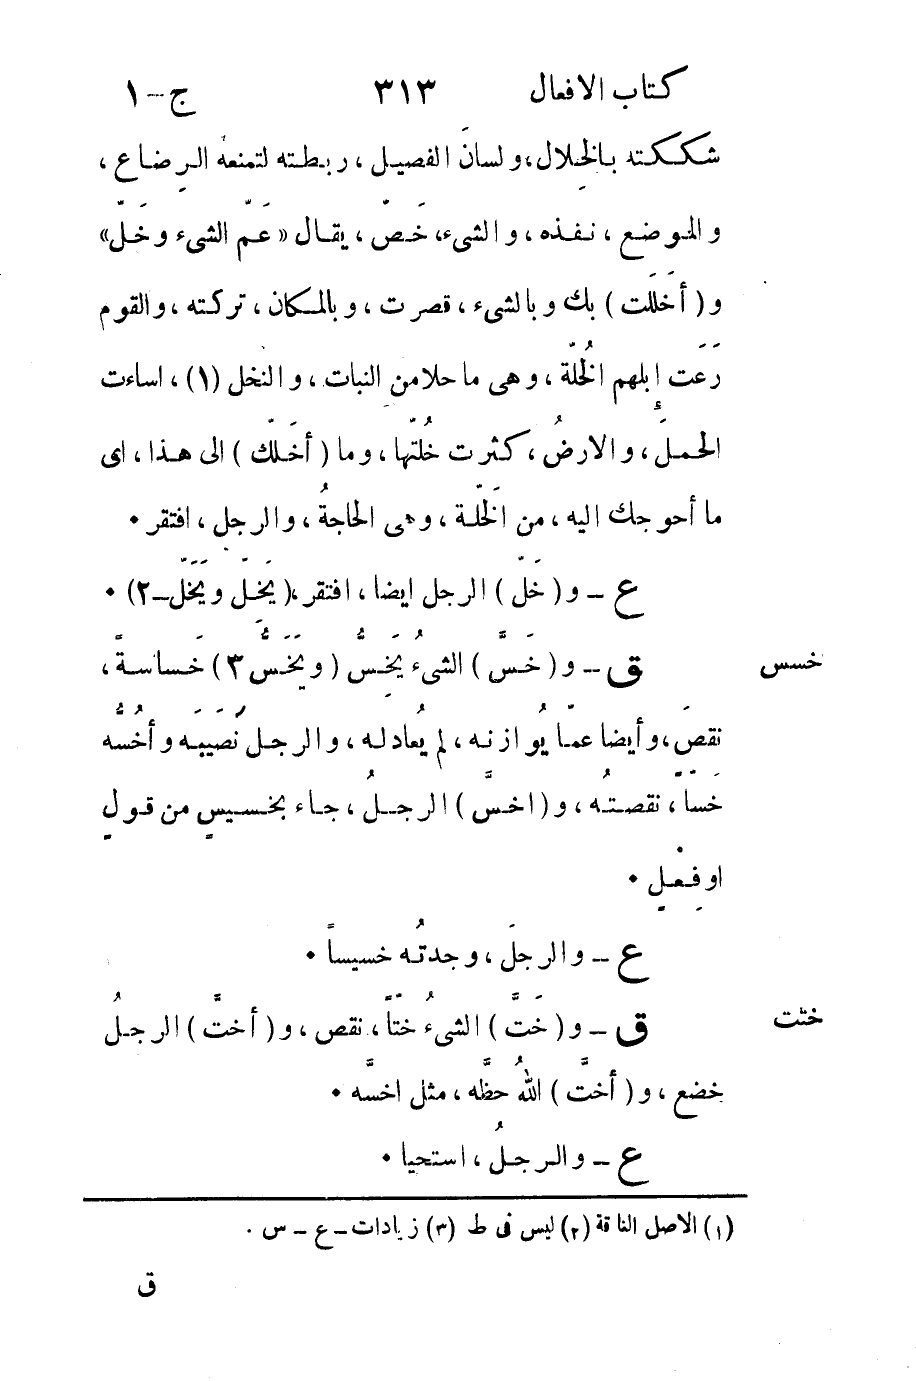 كتاب الافعال ٣١٣ ج-١
شككته بالخِلال، ولسانَ الفصيل، ربطته لتمنعهُ الرضاع،
والموضِع، نفذه، والشىء، خَصّ، يقال «عَمّ الشىء وخَلّ»
و(أخلَلَت) بك وبالشىء، قصرت، وبالمكان، تركته، والقوم
رَعَت إبلهم الخُلّة، وهى ما حلا من النبات، والنخل (١)، اساءت
الحملَ، والارضُ، كثرت خُلّتها، وما (أخَلّك) الى هذا، اى
ما أحوجك اليه، من الخَلّة، وهى الحاجةُ، والرجل، افتقر٠
ع - و(خَلّ) الرجل ايضا، افتقر، (يَخِلّ ويَخَلّ-٢)٠
خسس ق - و(خَسَّ) الشىءُ يَخِسُّ (ويَخَسُّ ٣) خَساسةً،
نقصَ، وأيضا عمّا يُوازنه، لم يُعادله، والرجلَ نَصيبَه وأخُسُّه
خسّاً، نقصتُه، و(اخسَّ) الرجلُ، جاء بخسيسٍ من قولٍ
او فِعْلٍ٠
ع - والرجلَ، وجدتُه خسيساً٠
ختت ق - و(خَتَّ) الشىءُ ختّاً، نقص، و(أختَّ) الرجلُ
خضع، و(أختَّ) اللهُ حظَّه، مثل اخسَّه٠
ع - والرجلُ، استحيا٠
(١) الاصل الناقة (٢) ليس فى ط (٣) زيادات-ع - س .
ق